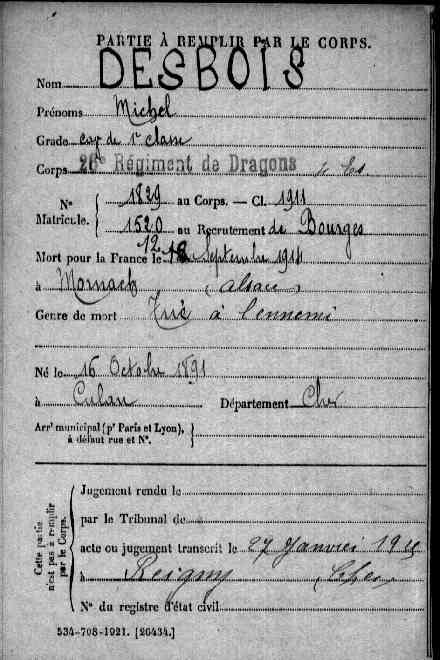 PARTIE À REMPLIR PAR LE CORPS.
Nom DESBOIS
Prénoms Michel
Grade cav de 1e classe
Corps 26e Régiment de Dragons
N° Matricule. { 1829 au Corps. — Cl. 1911
1520 au Recrutement de Bourges
Mort pour la France le 12 Septembre 1914
à Mornach (Alsace)
Genre de mort Tué à l'ennemi
Né le 16 Octobre 1891
à Culan Département Cher
Arrt municipal (pr Paris et Lyon),
à défaut rue et N°.
Cette partie n'est pas à remplir par le Corps.
Jugement rendu le
par le Tribunal de
acte ou jugement transcrit le 27 Janvier
à Reigny Cher
N° du registre d'état civil
534-708-1921. [26434.]